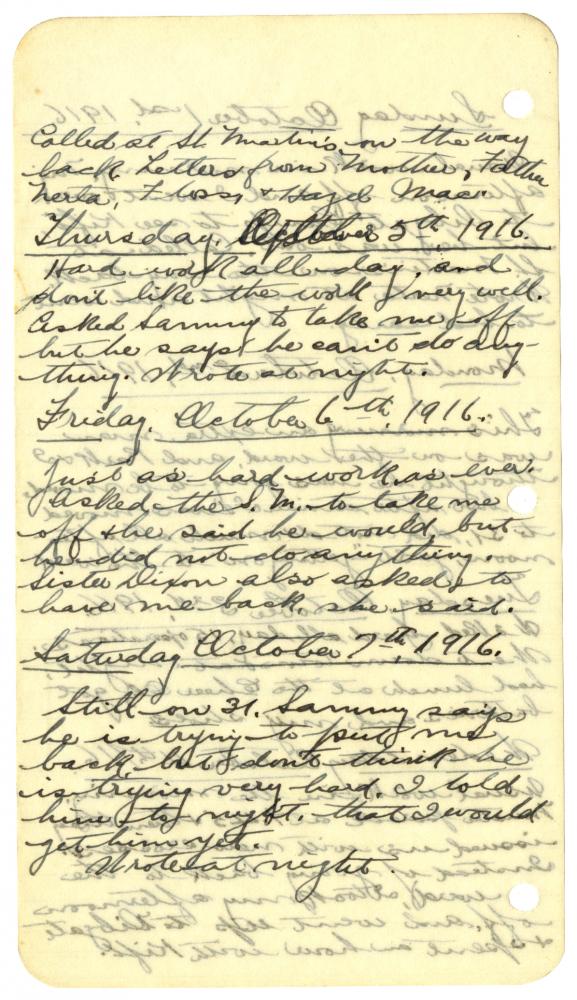 Called at St Martins on the way
back. Letters from Mother, Father
Nerla, Floss, & Hazel Mac.
Thursday. October 5th, 1916.
Hard work all day, and
don't like the work very well.
Asked Sammy to take me off
but he says he can't do any-
thing. Wrote at night.
Friday. October 6th, 1916.
Just as hard work as ever.
Asked the S. M. to take me
off & he said he would, but
he did not do anything.
Sister Dixon also asked to
have me back, she said.
Saturday October 7th, 1916.
Still on 31. Sammy says
he is trying to put me
back, but I don't think he
is trying very hard. I told
him to-night, that I would
get him yet.
Wrote at night.